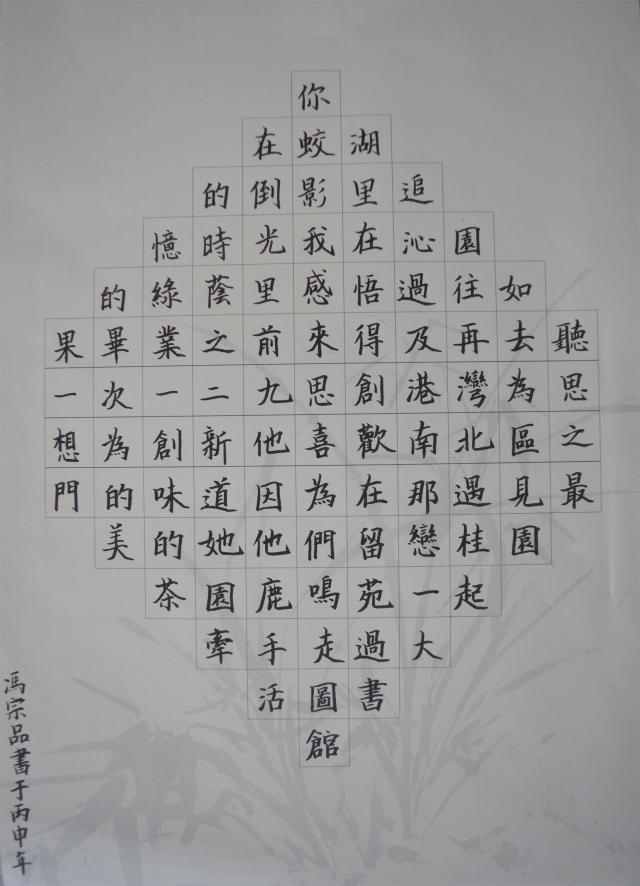 你
在蛟湖
的倒影里追
憶時光我在沁園
的綠蔭里感悟過往如
果畢業之前來得及再去聽
一次一二九思創港灣為思
想為創新他喜歡南北區之
門的味道因為在那遇見最
美的她他們留戀桂園
茶園鹿鳴苑一起
牽手走過大
活圖書
館
馮宗品書于丙申年